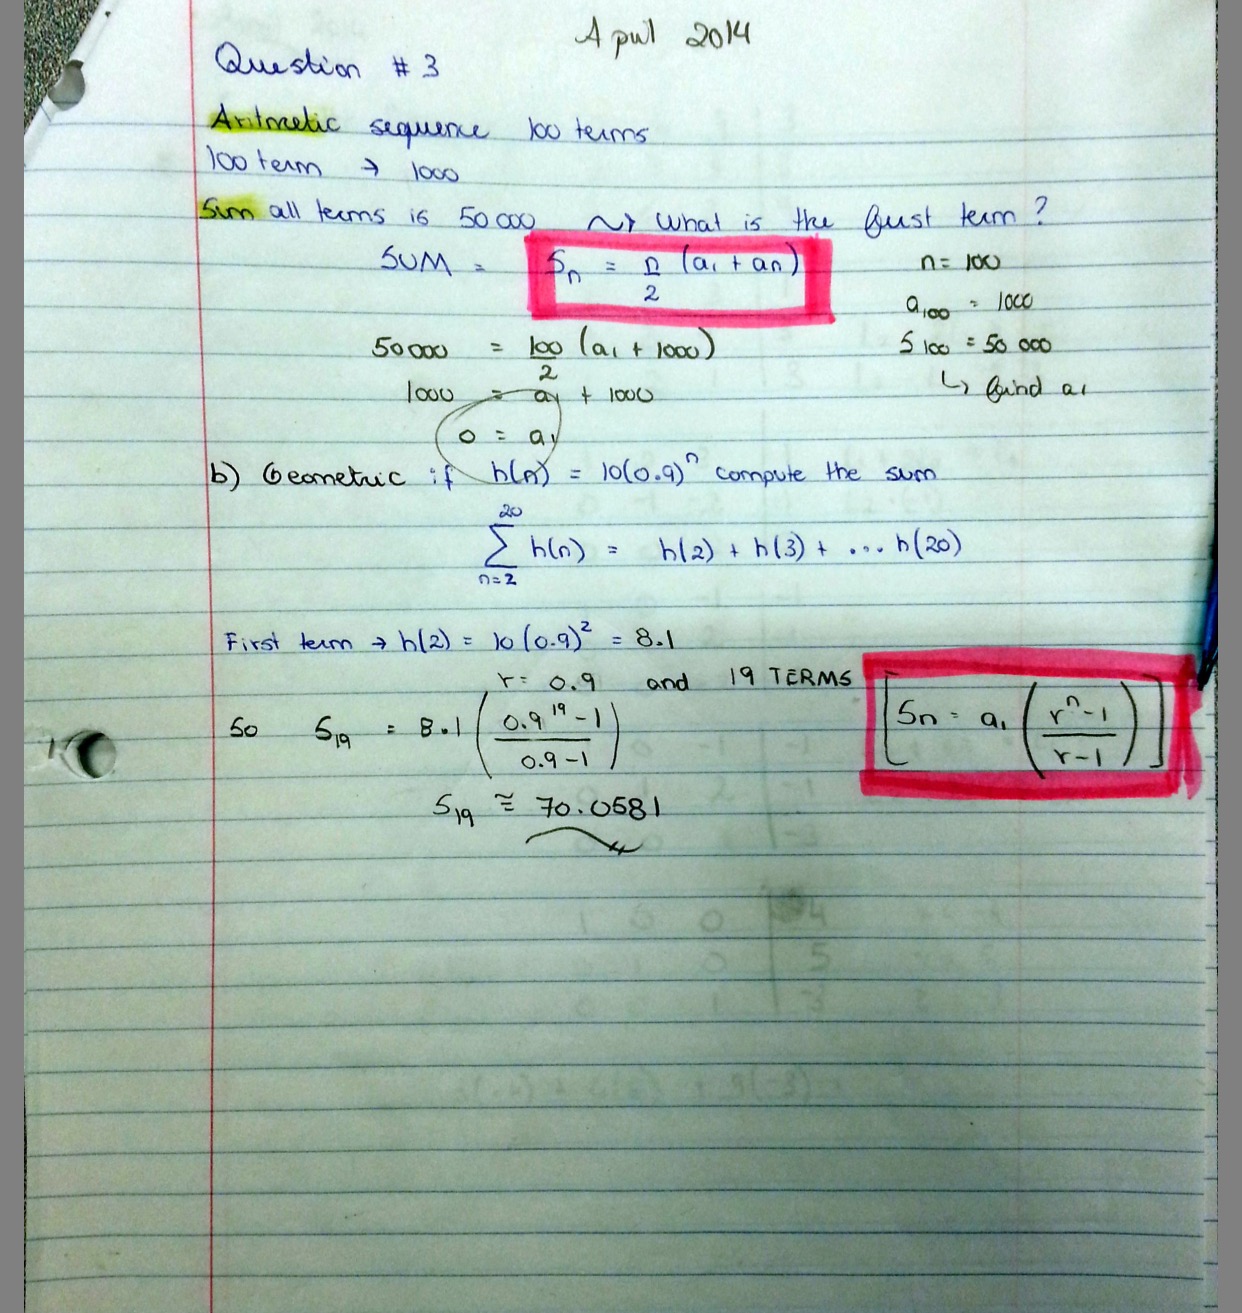 April 2014
Question # 3
Aritmetic sequence 100 terms
100 term → 1000
Sum all terms is 50 000 ~> What is the first term ?
SUM = Sₙ = n/2 (a₁ + aₙ) n = 100
a₁₀₀ = 1000
50 000 = 100/2 (a₁ + 1000) S₁₀₀ = 50 000
1000 = a₁ + 1000 ↳ find a₁
0 = a₁
b) Geometric if h(n) = 10(0.9)ⁿ compute the sum
20
∑ h(n) = h(2) + h(3) + ... h(20)
n=2
First term → h(2) = 10(0.9)² = 8.1
r = 0.9 and 19 TERMS
So S₁₉ = 8.1 ( (0.9¹⁹ - 1) / (0.9 - 1) ) [ Sn = a₁ ( (rⁿ - 1) / (r - 1) ) ]
S₁₉ ≅ 70.0581